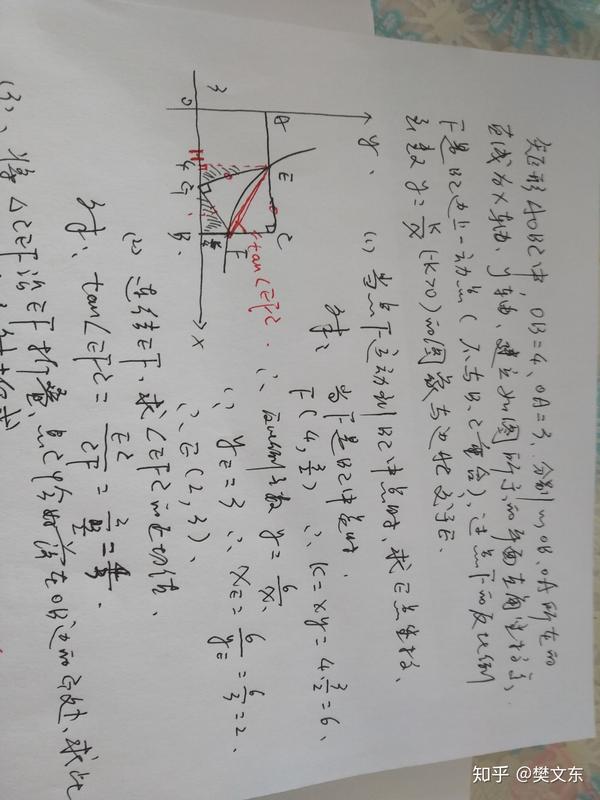 矩形AOBC中, OB=4, OA=3, 分别以OB、OA所在的
直线为x轴、y轴, 建立如图所示的平面直角坐标系,
F是BC边上一动点(不与B、C重合), 过点F的反比例
函数 y=k/x (k>0)的图象与边AC交于E.
(1) 当点F运动到BC中点时, 求E点坐标.
解: 当F是BC中点时.
F(4, 3/2) ∴ k=xy=4·3/2=6.
∴ 反比例函数 y=6/x.
∵ yE=3 ∴ xE=6/yE=6/3=2.
∴ E(2, 3).
(2) 连结EF, 求∠EFC的正切值.
解: tan∠EFC=EC/CF=
(3)、将△CEF沿EF折叠, 点C恰好落在OB边的G处, 求此
y
A
E
C
3
F
tan∠EFC.
O
H
4
G
B
x
知乎 @樊文东